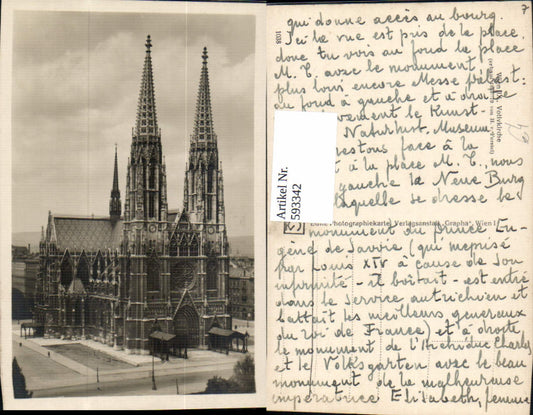 7
qui donne accès au bourg.
Ici la vue est pris de la place,
donc tu vois au fond la place
M. T. avec le monument,
plus loin encore Messe palast:
au fond à gauche et à droite
vement le Kunst-
Naturhist. Museum
restons face à la
à la place M. T., nous
gauche la Neue Burg
laquelle se dresse le
monument du prince Eu-
gène de Savoie (qui méprisé
par Louis XIV à cause de son
infirmité - il boitait - est entré
dans le service autrichien et
battait les meilleurs généraux
du roi de France) et à droite
le monument de l'Archiduc Charles
et le Volksgarten avec le beau
monument de la malheureuse
impératrice Elisabeth, femme
1038
Wien IX. Votivkirche
64
Artikel Nr.
593342
Photographiekarte! Verlagsanstalt „Grapha“, Wien I